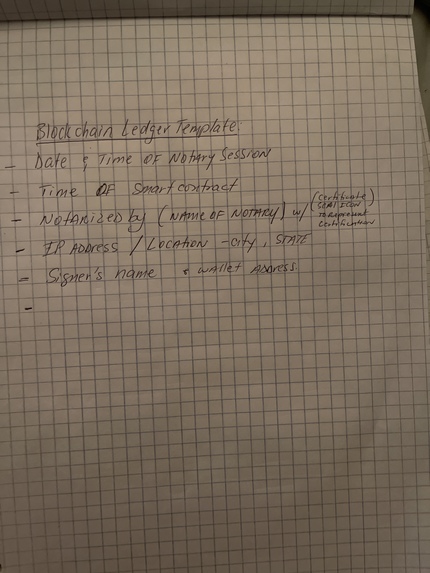 Blockchain Ledger Template:
- Date & Time OF Notary Session
- Time OF Smart contract
- Notarized by (NAME OF NOTARY) w/ (Certificate
SEAL ICON
to Represent
Certification)
- IP ADDRESS / LOCATION - city, STATE
- Signer's name & WALLET ADDRESS
-